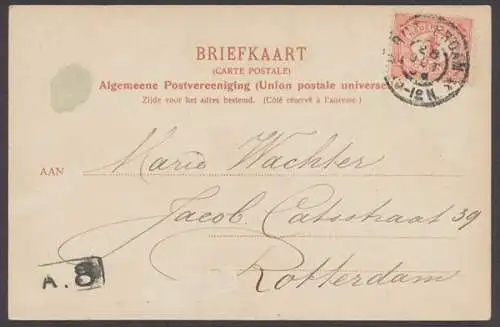 BRIEFKAART
(CARTE POSTALE)
Algemeene Postvereeniging (Union postale universe
Zijde voor het adres bestemd. (Côté réservé à l'adresse.)
AAN
Mario Wachter
Jacob Catsstraat 39
Rotterdam
A.8